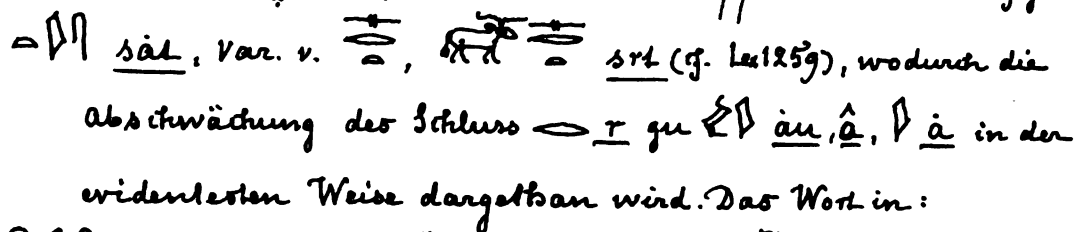 𓏏𓇋𓋴 sȧt, Var. v. 𓊃𓂋𓏏, 𓊃𓂋𓏏 srt (cf. Lex 1259), wodurch die
abschwächung des Schluss 𓂋 r zu 𓇋 ȧu, â, 𓇋 ȧ in der
evidentesten Weise dargethan wird. Das Wort in: